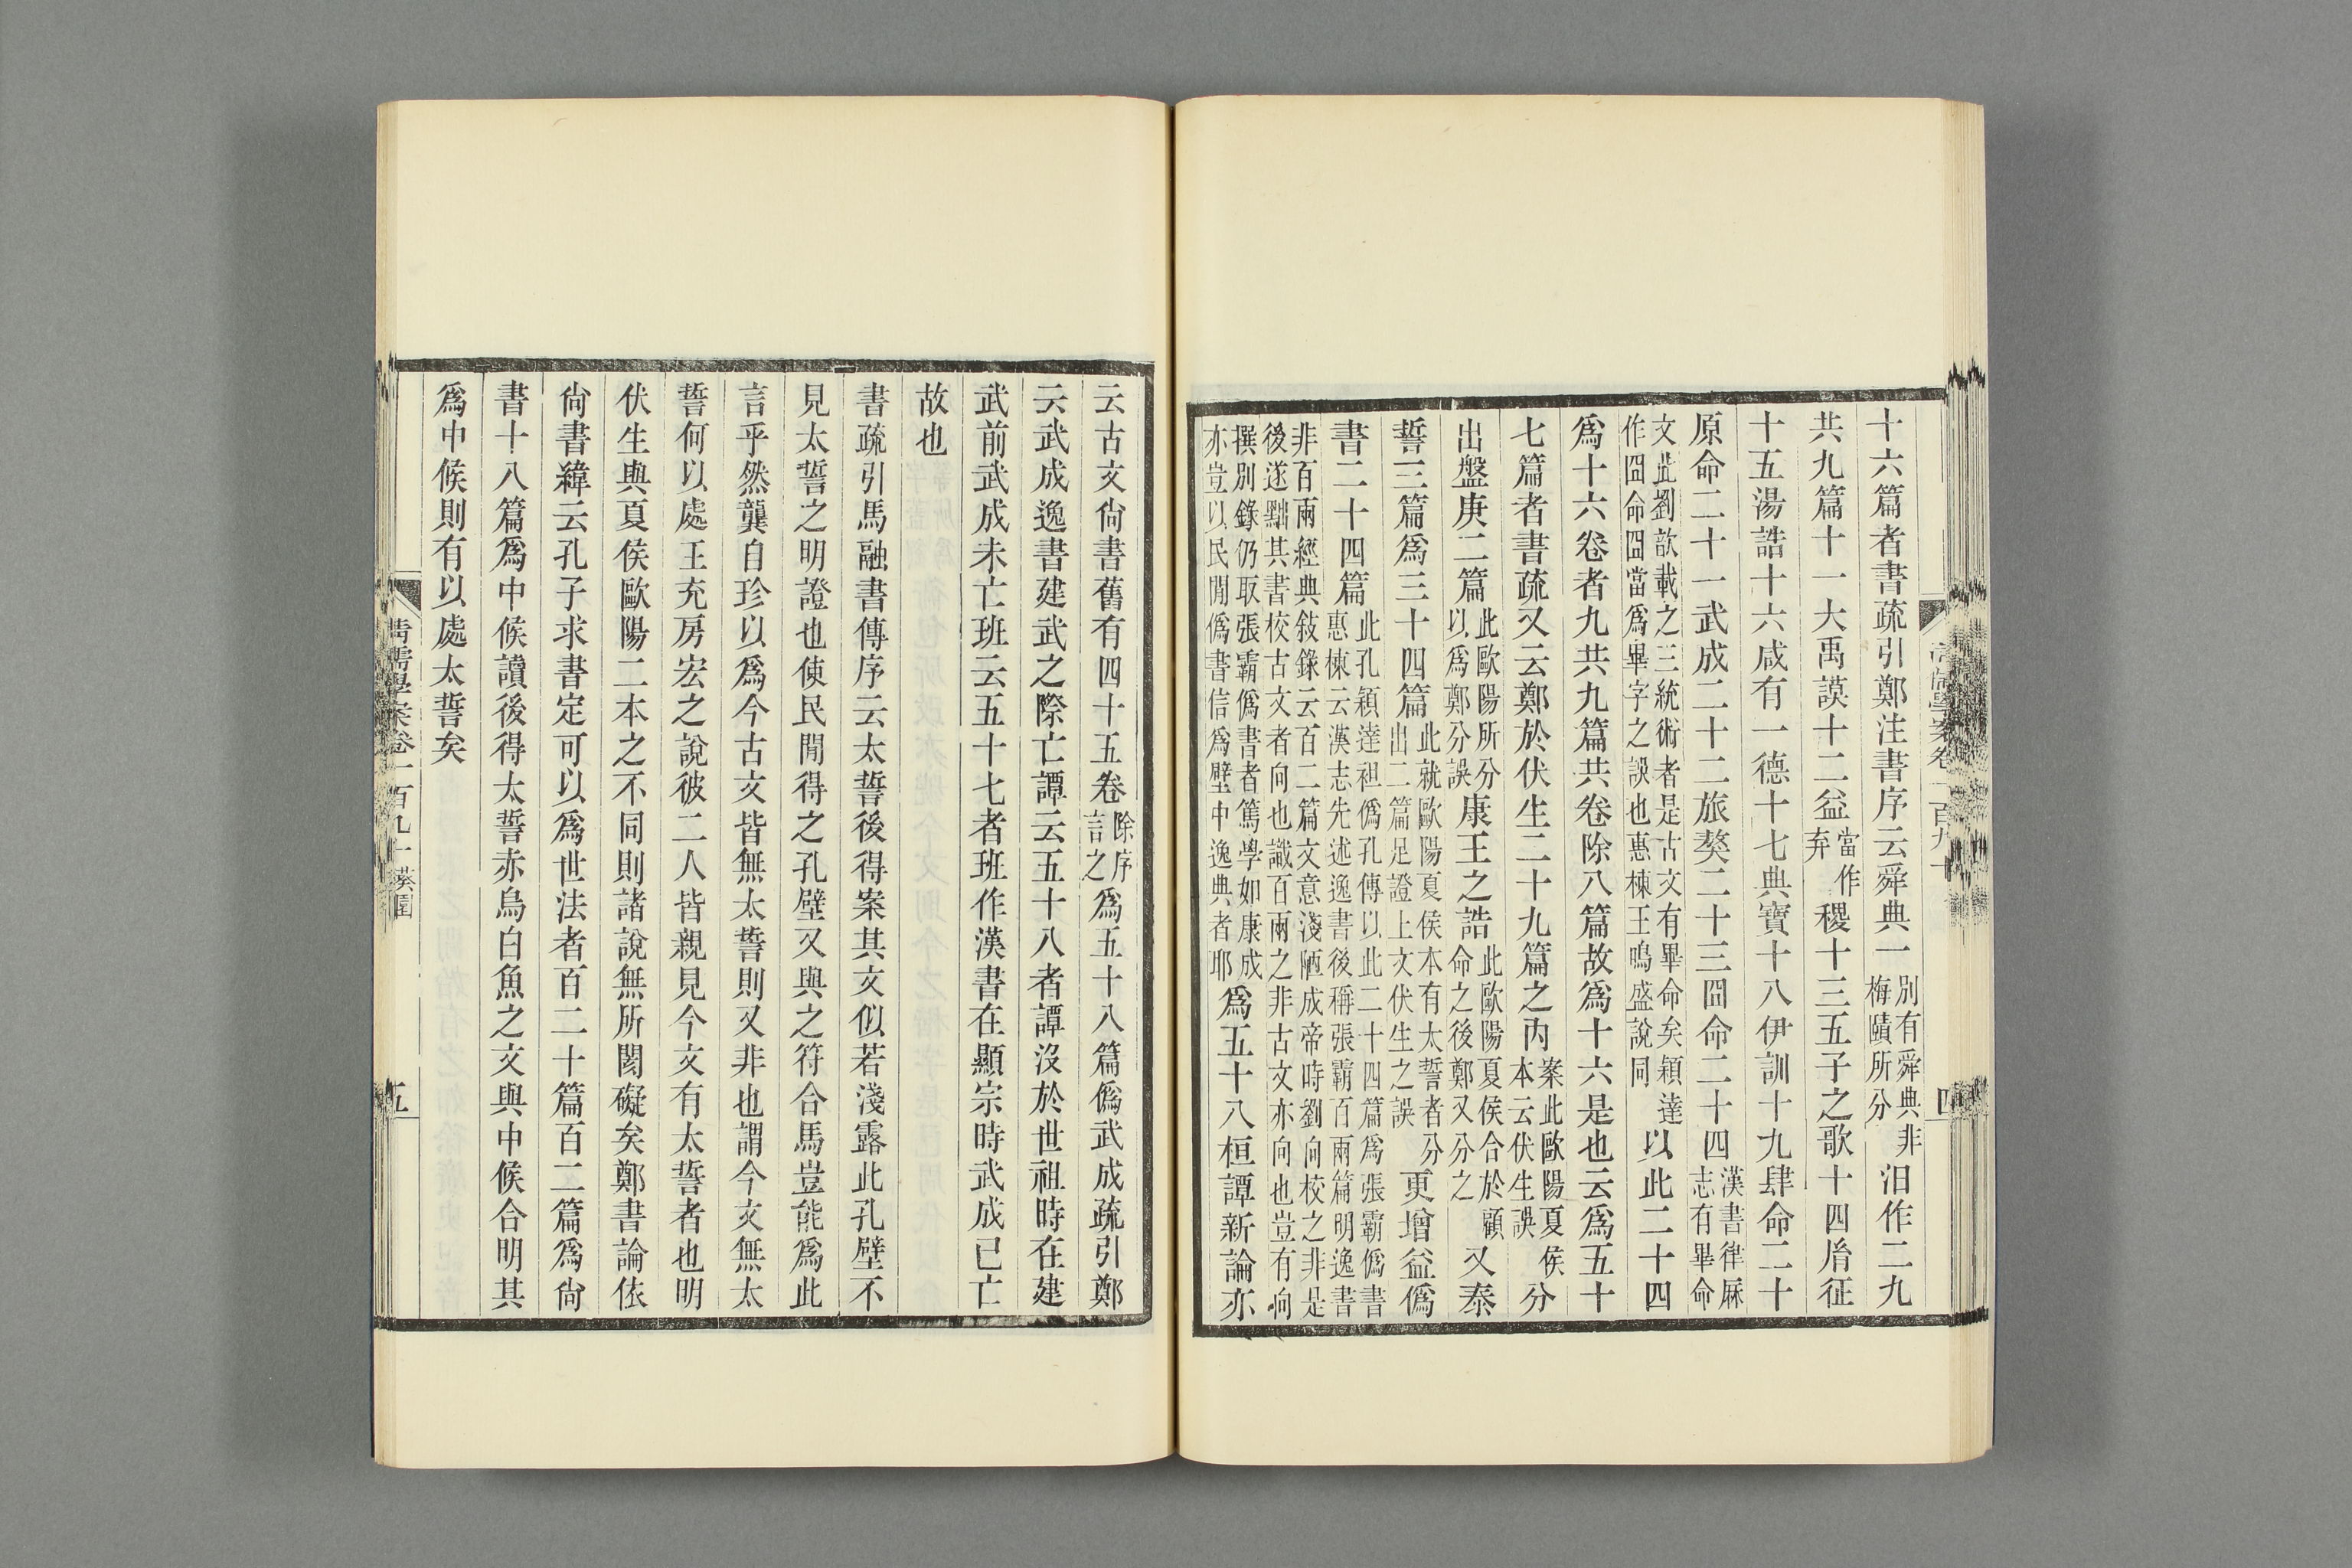 清儒學案卷一百九十 四
十六篇者書疏引鄭注書序云舜典一別有舜典非梅賾所分汩作二九
共九篇十一大禹謨十二益當作弃稷十三五子之歌十四胤征
十五湯誥十六咸有一德十七典寶十八伊訓十九肆命二十
原命二十一武成二十二旅獒二十三冏命二十四漢書律厤志有畢命
文此劉歆載之三統術者是古文有畢命矣穎達作冏命冏當爲畢字之誤也惠棟王鳴盛說同以此二十四
爲十六卷者九共九篇共卷除八篇故爲十六是也云爲五十
七篇者書疏又云鄭於伏生二十九篇之內案此歐陽夏侯本云伏生誤分
出盤庚二篇此歐陽所分以爲鄭分誤康王之誥此歐陽夏侯合於顧命之後鄭又分之又泰
誓三篇爲三十四篇此就歐陽夏侯本有太誓者分出二篇足證上文伏生之誤更增益僞
書二十四篇此孔穎達祖僞孔傳以此二十四篇爲張霸僞書惠棟云漢志先述逸書後稱張霸百兩篇明逸書
非百兩經典敍錄云百二篇文意淺陋成帝時劉向校之非是後遂黜其書校古文者向也識百兩之非古文亦向也豈有向
撰別錄仍取張霸僞書者篤學如康成亦豈以民閒僞書信爲壁中逸典者耶爲五十八桓譚新論亦
云古文尙書舊有四十五卷除序言之爲五十八篇僞武成疏引鄭
云武成逸書建武之際亡譚云五十八者譚沒於世祖時在建
武前武成未亡班云五十七者班作漢書在顯宗時武成已亡
故也
書疏引馬融書傳序云太誓後得案其文似若淺露此孔壁不
見太誓之明證也使民閒得之孔壁又與之符合馬豈能爲此
言乎然龔自珍以爲今古文皆無太誓則又非也謂今文無太
誓何以處王充房宏之說彼二人皆親見今文有太誓者也明
伏生與夏侯歐陽二本之不同則諸說無所閡礙矣鄭書論依
尙書緯云孔子求書定可以爲世法者百二十篇百二篇爲尙
書十八篇爲中候讀後得太誓赤烏白魚之文與中候合明其
爲中候則有以處太誓矣
清儒學案卷一百九十 葵園 五